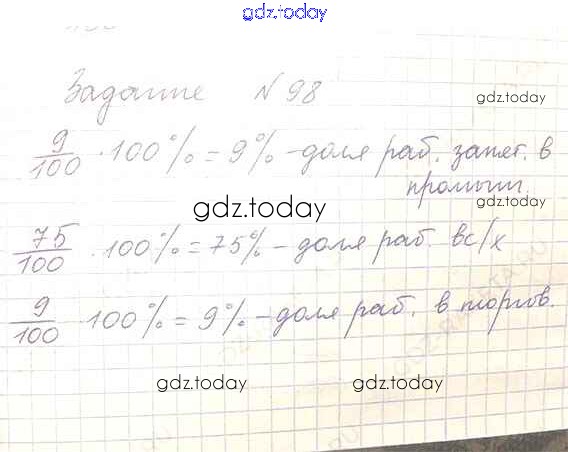 gdz.today
Задание №98
gdz.today
9/100 · 100% = 9% - доля раб. занят. в
промышл.
gdz.today
gdz.today
75/100 · 100% = 75% - доля раб. в с/х
9/100 · 100% = 9% - доля раб. в торгов.
gdz.today gdz.today